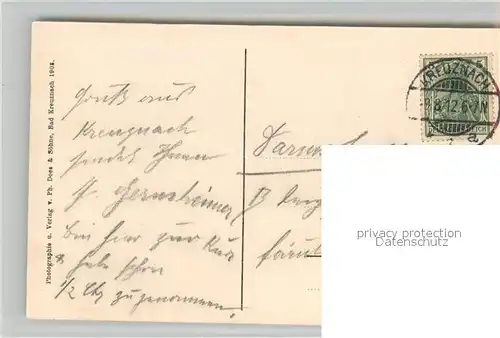 Photographie u. Verlag v. Ph. Dees & Söhne, Bad Kreuznach 1904.
Gruß aus
Kreuznach
sendet Ihnen
Gernsheimer
bin hier zur Kur
habe schon
1/2 Kg zugenommen
KREUZNACH
8.12.6-7N
a
privacy protection
Datenschutz